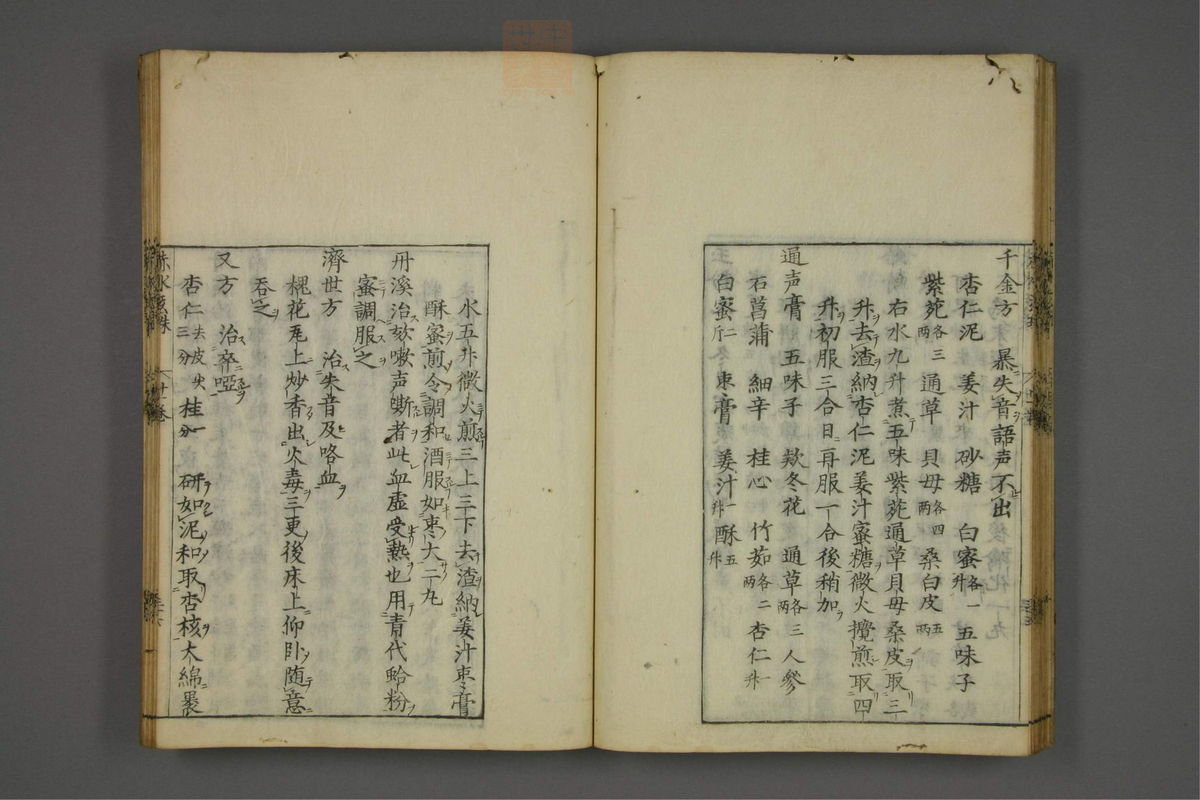 千金方　暴失音語声不出
杏仁泥　姜汁　砂糖　白蜜各一升　五味子
紫菀各三両　通草　貝母各四両　桑白皮五両
右水九升煮五味紫菀通草貝母桑皮取三
升去渣納杏仁泥姜汁蜜糖微火攪煎取四
升初服三合日再服一合後稍加
通声膏　五味子　欵冬花　通草各三両　人參
石菖蒲　細辛　桂心　竹茹各二両　杏仁一升
白蜜二斤　枣膏　姜汁一升　酥五升
水五升微火煎三上三下去渣納姜汁枣膏
酥蜜煎令調和酒服如枣大二丸
丹溪治欬嗽声嘶者此血虛受熱也用青代蛤粉
蜜調服之
濟世方　治失音及咯血
槐花瓦上炒香出火毒三更後床上仰卧随意
吞之
又方　治卒啞
杏仁三分去皮尖　桂一分　研如泥和取杏核大綿褁
赤水玄珠